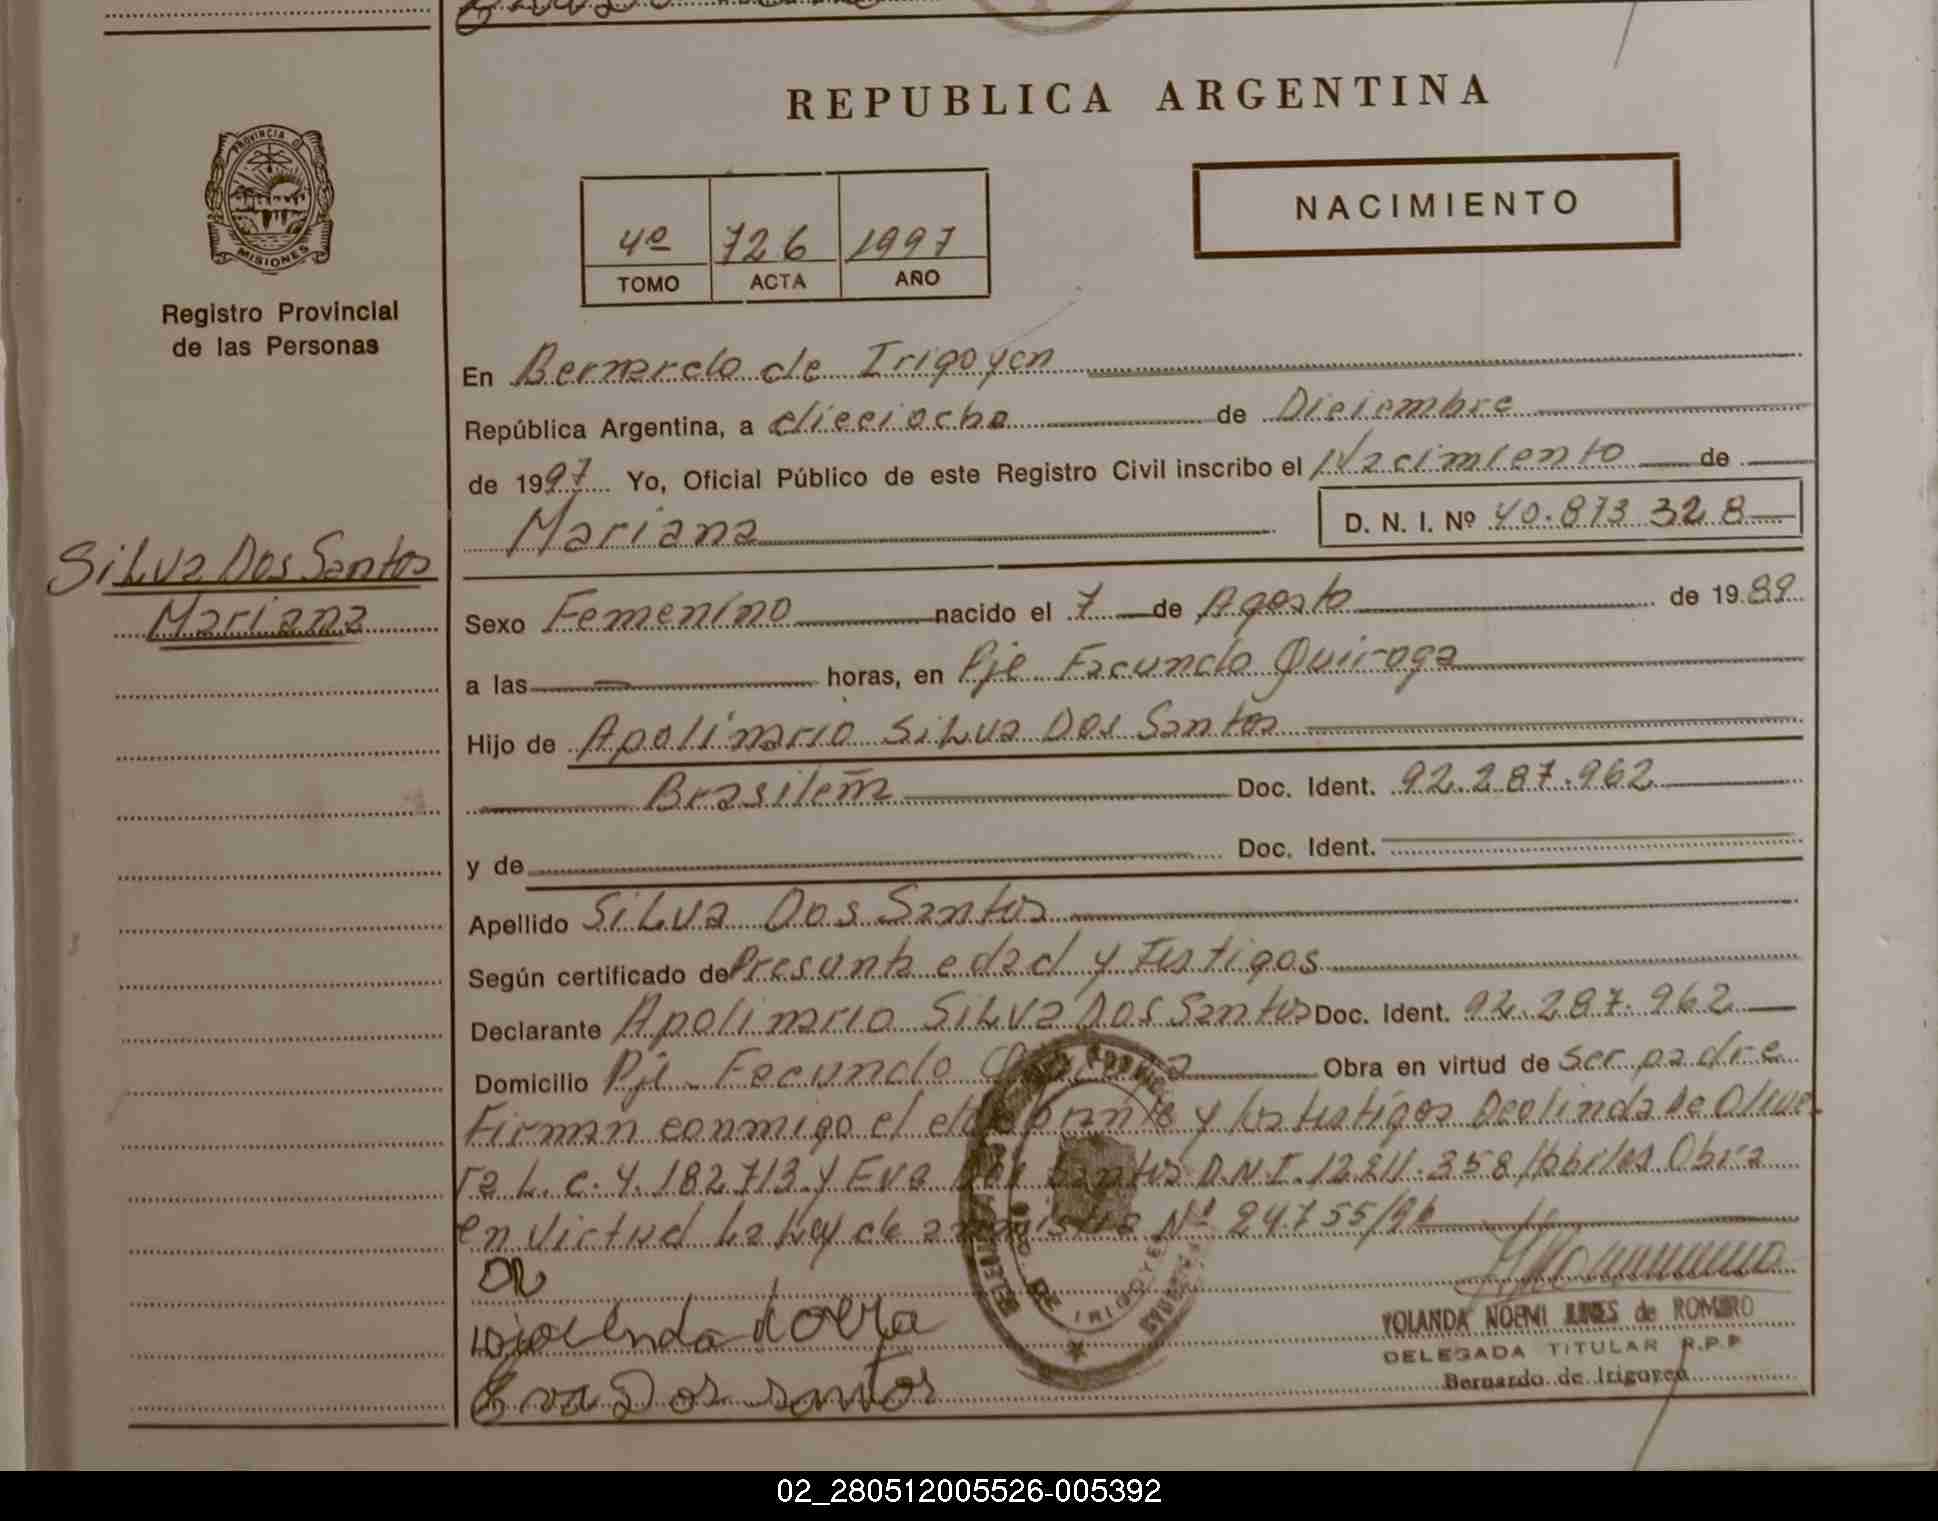 REPUBLICA ARGENTINA
PROVINCIA D
MISIONES
Registro Provincial
de las Personas
4º 726 1997
TOMO ACTA AÑO
NACIMIENTO
En Bernardo de Irigoyen
República Argentina, a dieciocho de Diciembre
de 1997 Yo, Oficial Público de este Registro Civil inscribo el Nacimiento de
Mariana D. N. I. Nº 40.873 328
Silva Dos Santos
Mariana
Sexo Femenino nacido el 7 de Agosto de 1989
a las horas, en Pje Facundo Quiroga
Hijo de Apolinario Silva Dos Santos
Brasileña Doc. Ident. 92.287.962
y de Doc. Ident.
Apellido Silva Dos Santos
Según certificado de Presunta edad y Testigos
Declarante Apolinario Silva Dos Santos Doc. Ident. 92.287.962
Domicilio Pje Facundo Obra en virtud de ser padre
Firman conmigo el y los testigos Deolinda de Olive
ra L.C. 4.182713 y Eva Dos Santos D.N.I. 12.211.358 Habiles Obra
en Virtud La Ley de Nº 24.755/96
Eva Dos Santos
YOLANDA NOEMI de ROMERO
DELEGADA TITULAR R.P.P
Bernardo de Irigoyen
DE IRIGOYEN
02_280512005526-005392